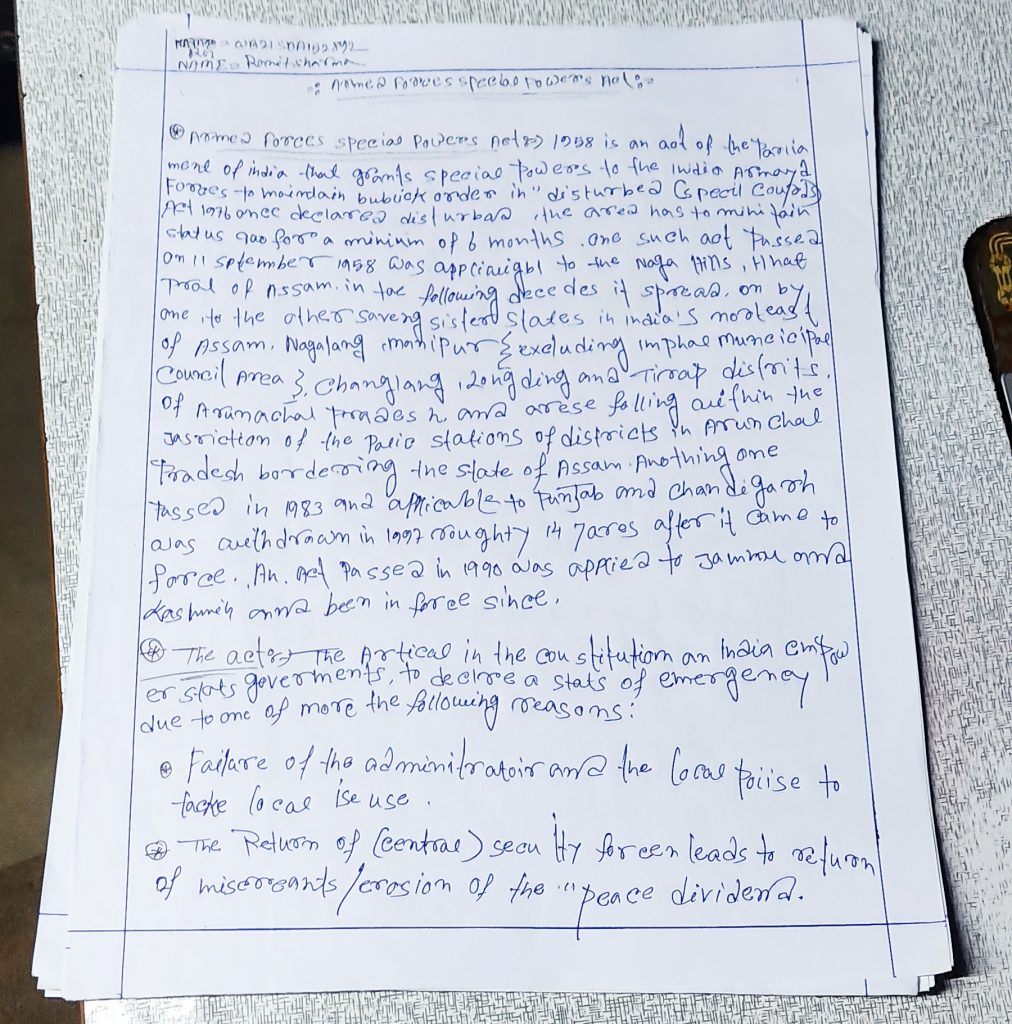 NAME = Romit sharma
Armed Forces special Powers Act
Armed Forces special Powers Act 1958 is an act of the Parlia
ment of india that grants special Powers to the india Armay d
Forces to maindain bubick order in "disturbed (specil Courts)
Act 1976 once declared disturbad , the area has to mini tain
status for a minium of 6 months . one such act Passed
on 11 september 1958 was to the Naga Hills , that
of Assam. in the following decedes it spread, on by
one , to the other saveng sisterd States in india's norleast
of Assam. Nagalang , manipur { excluding imphae muncicipae
Council Area }, Changlang , Longding and Tirap distrits,
of Arunachal Prades h and arese falling within the
Jasriction of the Palio stations of districts in Arun chal
Pradesh bordering the state of Assam. Anothing one
Passed in 1983 and applicable to Punjab and chandigarh
was withdrawn in 1997 roughty 14 Yares after it came to
force. An. Act Passed in 1990 was applied to Jammu and
Kashmir anna been in force since.
The act The Artical in the constitution an India empow
er stats goverments, to declare a stats of emergency
due to one of more the following reasons:
Failare of the adminitratoir and the local Poiise to
tacke local ise use .
The Return of (centrae) secu ity forcen leads to return
of miscreants / erosion of the "peace dividend.